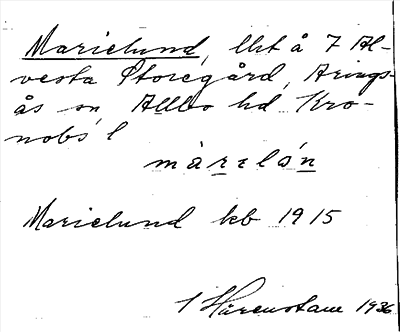 Marielund, lht å 7 Al-
vesta Storegård, Arings-
ås sn Allbo hd Kro-
nobs l
màrelón
Marielund kb 1915
Hårenstam 1936